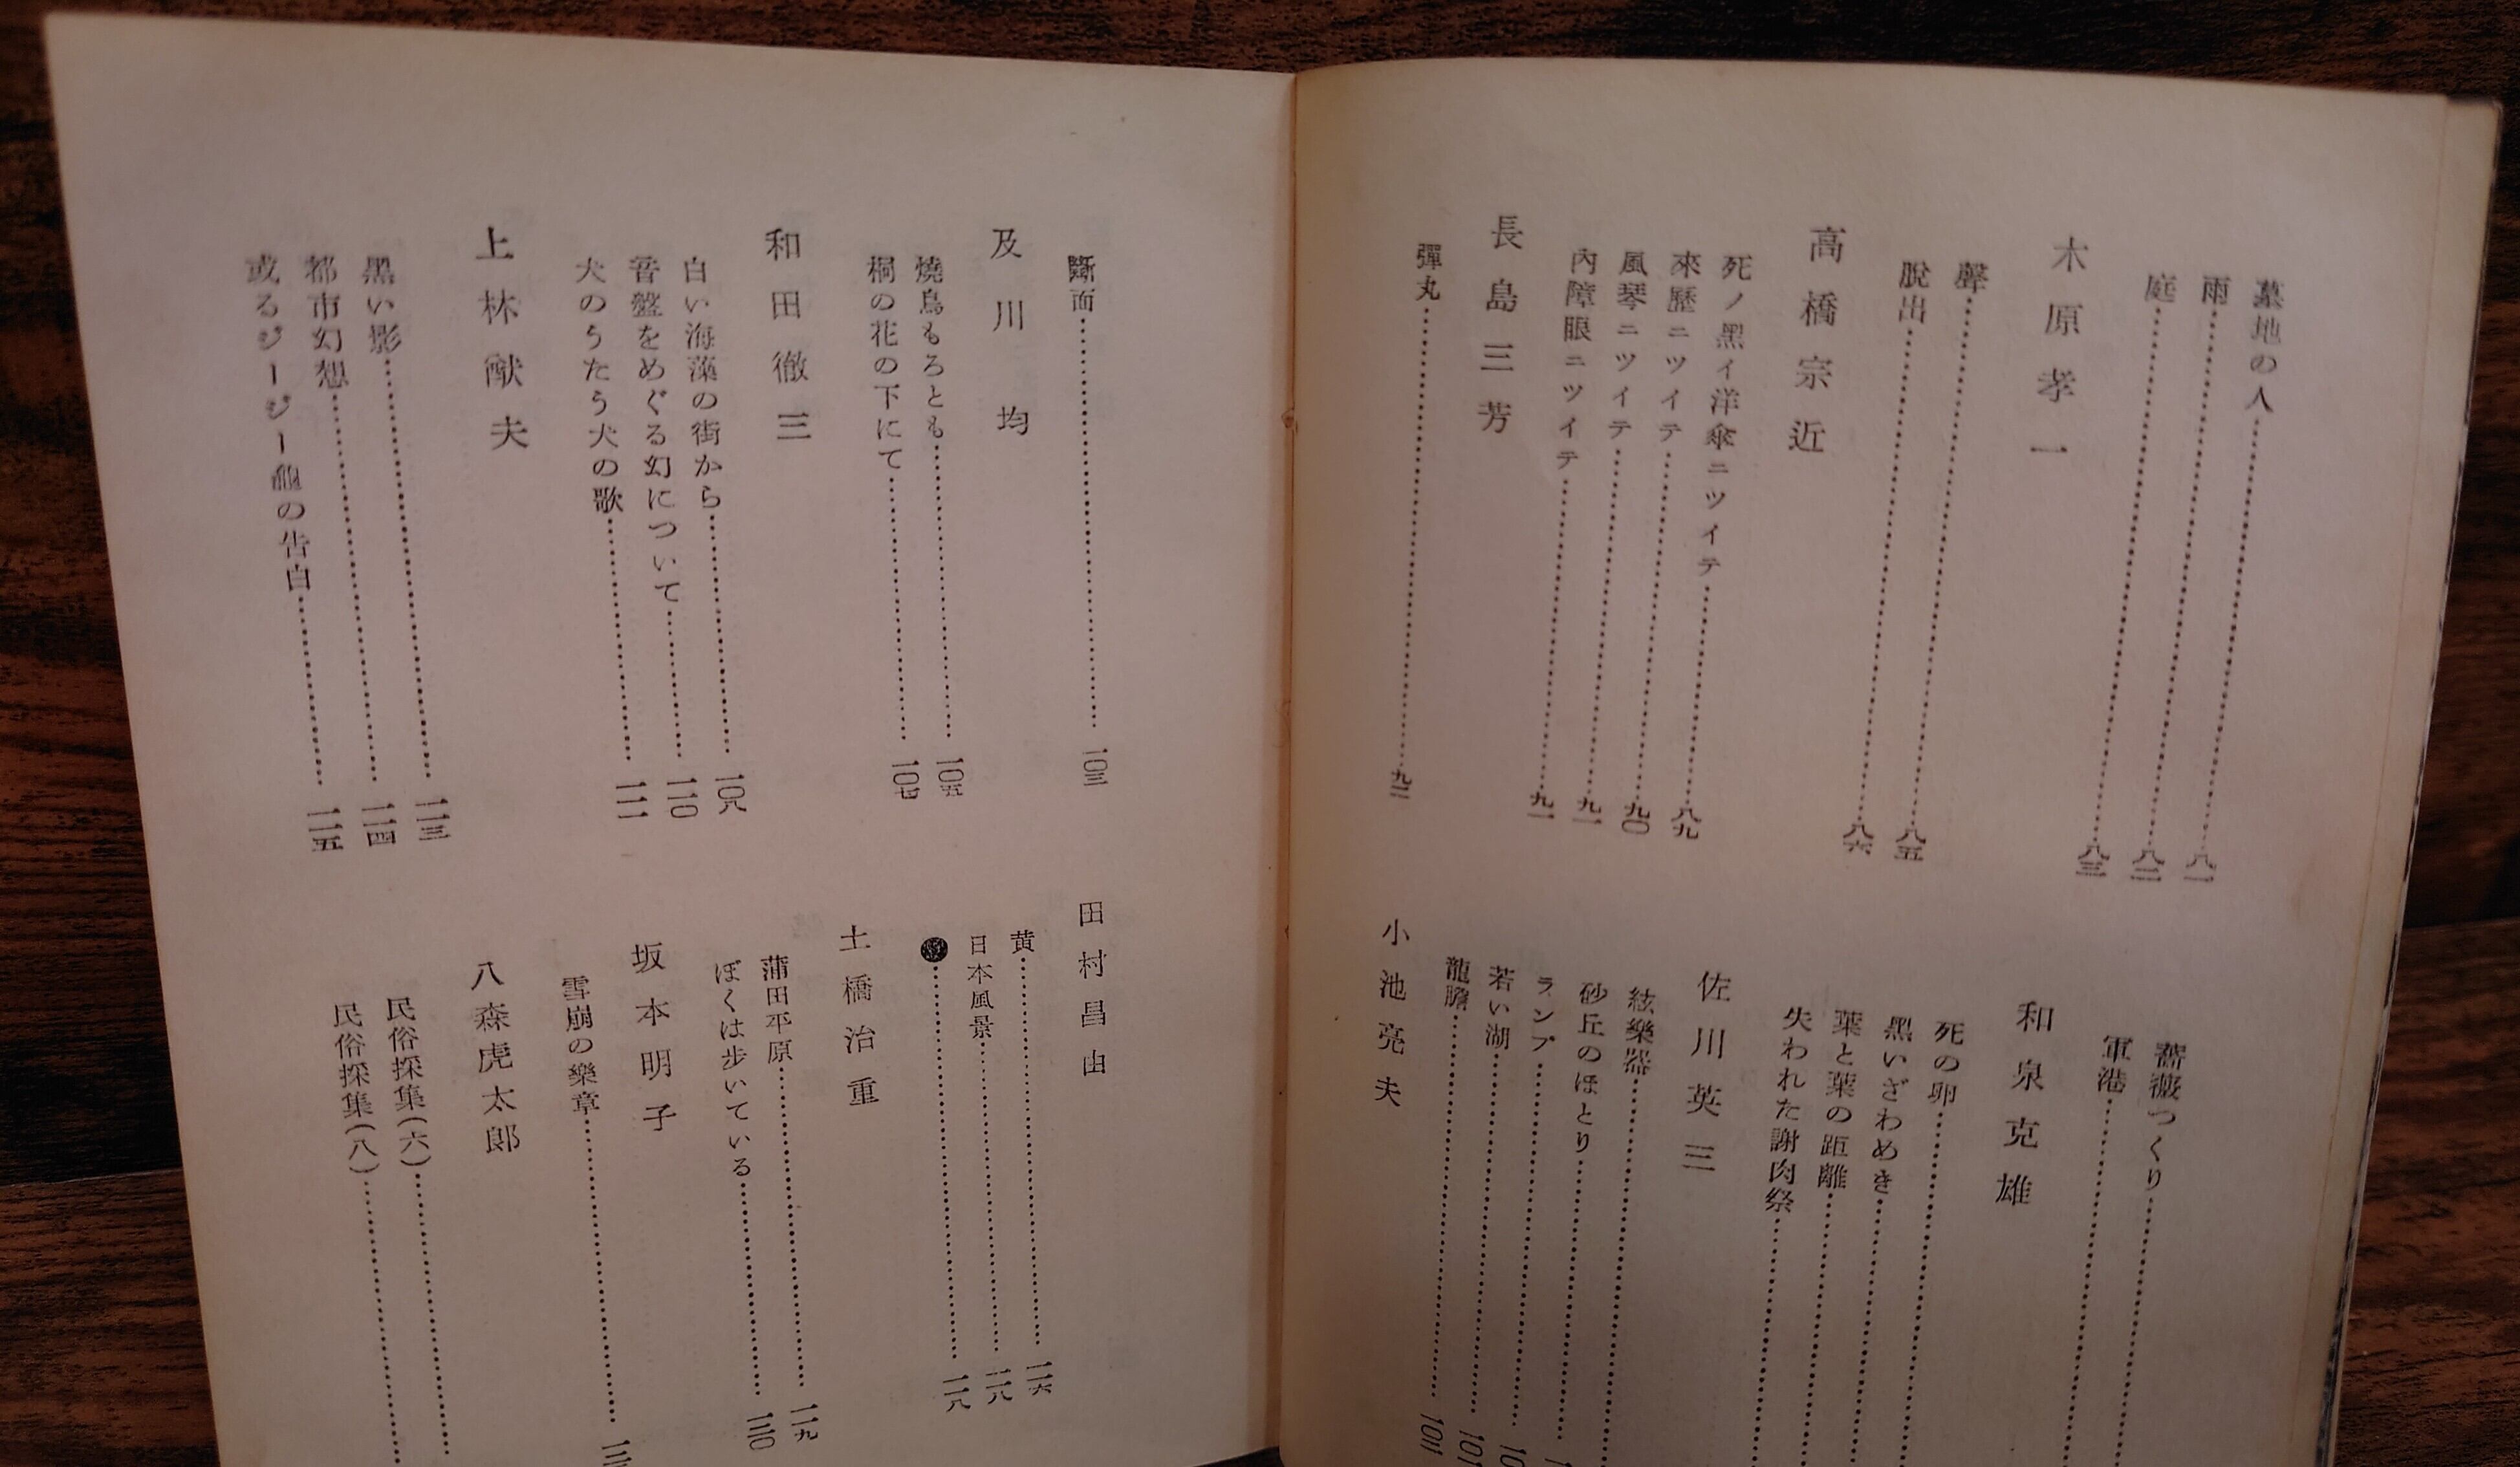 墓地の人…八一
雨…八二
庭…八三
木原孝一
聲…八五
脫出…八六
高橋宗近
死ノ黑イ洋傘ニツイテ…八九
來歷ニツイテ…九〇
風琴ニツイテ…九一
內障眼ニツイテ…九一
長島三芳
彈丸…九三
薔薇つくり
軍港
和泉克雄
死の卵
黑いざわめき
葉と葉の距離
失われた謝肉祭
佐川英三
絃樂器
砂丘のほとり
ランプ
若い湖
龍膽
小池亮夫
斷面…一〇三
及川均
燒鳥もろとも…一〇五
桐の花の下にて…一〇七
和田徹三
白い海藻の街から…一〇八
音盤をめぐる幻について…一一〇
犬のうたう犬の歌…一一一
上林猷夫
黑い影…一一三
都市幻想…一一四
或るジージー龜の告白…一一五
田村昌由
黄…一一六
日本風景…一一八
…一一八
土橋治重
蒲田平原…一一九
ぼくは歩いている…一二〇
坂本明子
雪崩の樂章
八森虎太郎
民俗採集(六)
民俗採集(八)